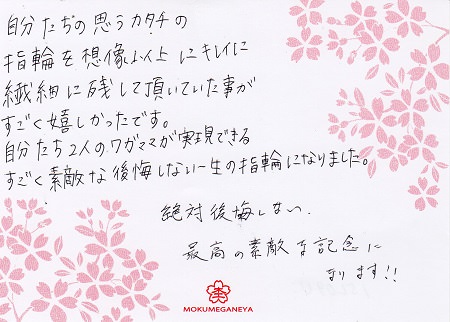 自分たちの思うカタチの
指輪を想像以上にキレイに
繊細に残して頂いていた事が
すごく嬉しかったです。
自分たち2人のワガママが実現できる
すごく素敵な後悔しない一生の指輪になりました。
絶対後悔しない.
最高の素敵な記念に
なります!!
MOKUMEGANEYA